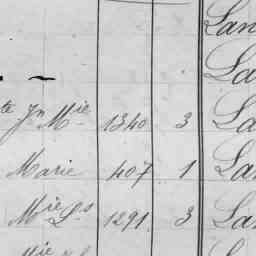 Lan
La
te Jn Mie 1340 3 La
Marie 407 1 La
Mie Ls 1291 3 La
Mie